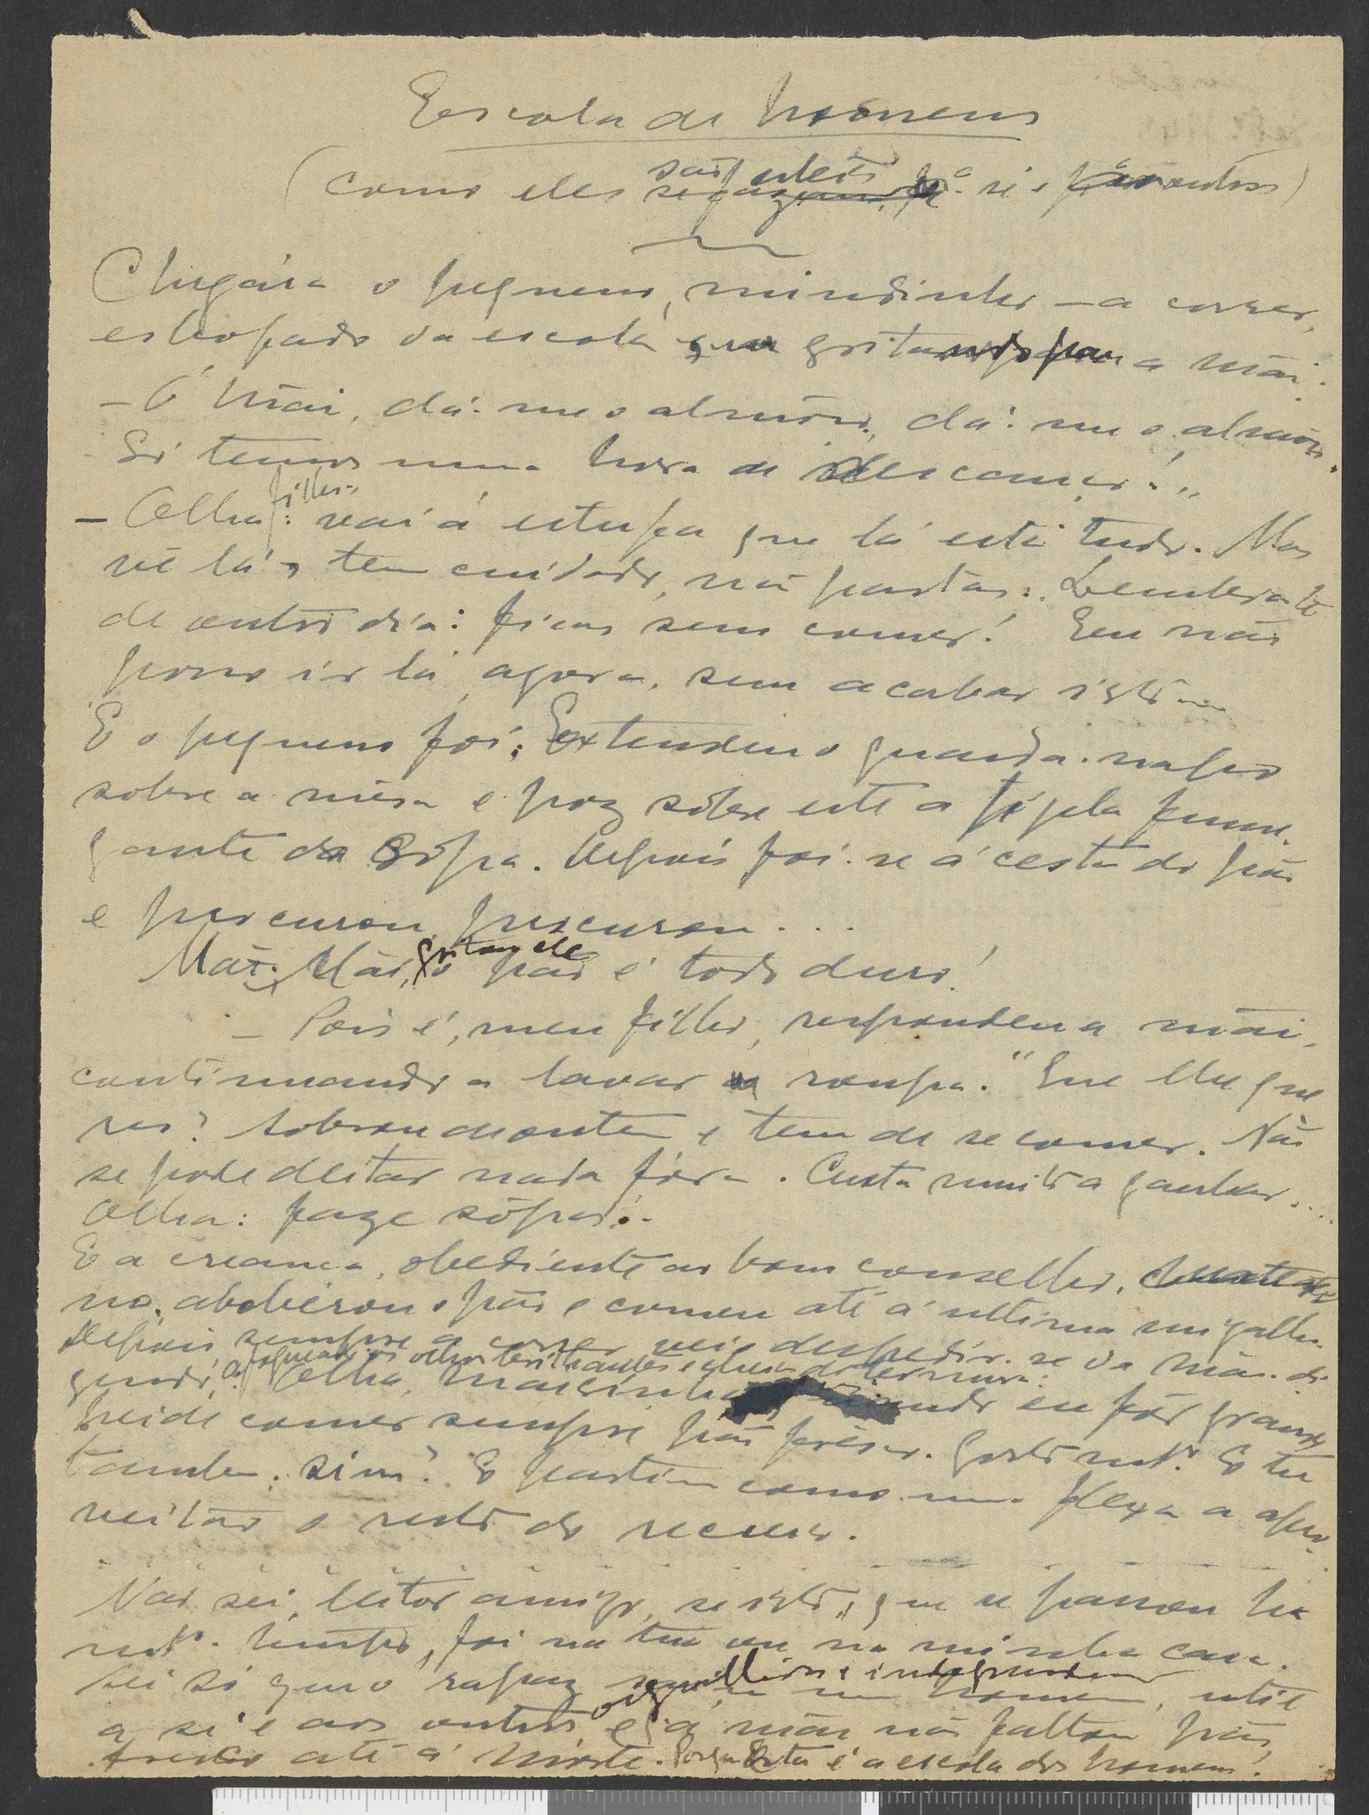 Escola de homens
(como eles são uteis a si e aos outros)
Chegára o pequeno, mindinho — a correr,
esbofado da escola, gritando para a mãi:
— Ó Mãi, dá-me o almôço, dá-me o almôço.
Só temos uma hora de descanço!"
— Olha filho: vai á estufa que lá está tudo. Mas
vê lá, tem cuidado, não partas. Lembra-te
do outro dia: ficas sem comer! Eu não
posso ir lá agora, sem acabar isto...
E o pequeno foi: Extendeu o guarda-napo
sobre a mêsa e poz sôbre este a tijela fume-
gante da Sôpa. Depois foi-se á cesta do pão
e procurou, procurou...
Mãi, Mãi, gritou ele o pão é todo duro!
— Pois é, meu filho, respondeu a mãi,
continuando a lavar a roupa. "Que lhe que
res? Sobrou de ontem e tem de se comer. Não
se pode deitar nada fóra. Custa muito a ganhar....
Olha: faze sôpas!..
E a creança, obediente ao bom conselho,
amoleceu o pão e comeu até á ultima migalha.
Depois sempre a correr veio despedir-se da Mãi di-
zendo, olhos brilhantes e cheios de ternura:
Olha, mãisinha, quando eu fôr grande
heide comer sempre pão frêsco. Gosto mto. E tu
tambem. Sim? E partiu como uma flexa a apro
veitar o resto do recreio.
Não sei, leitor amigo, se isto, que se passou ha
mto. tempo, foi na tua ou na minha casa.
Sei só que o rapaz um homem, util
orgulhoso e independente
a si e aos outros e á mãi não faltou pão
fresco até á Morte. Porque esta é a escola dos homens.